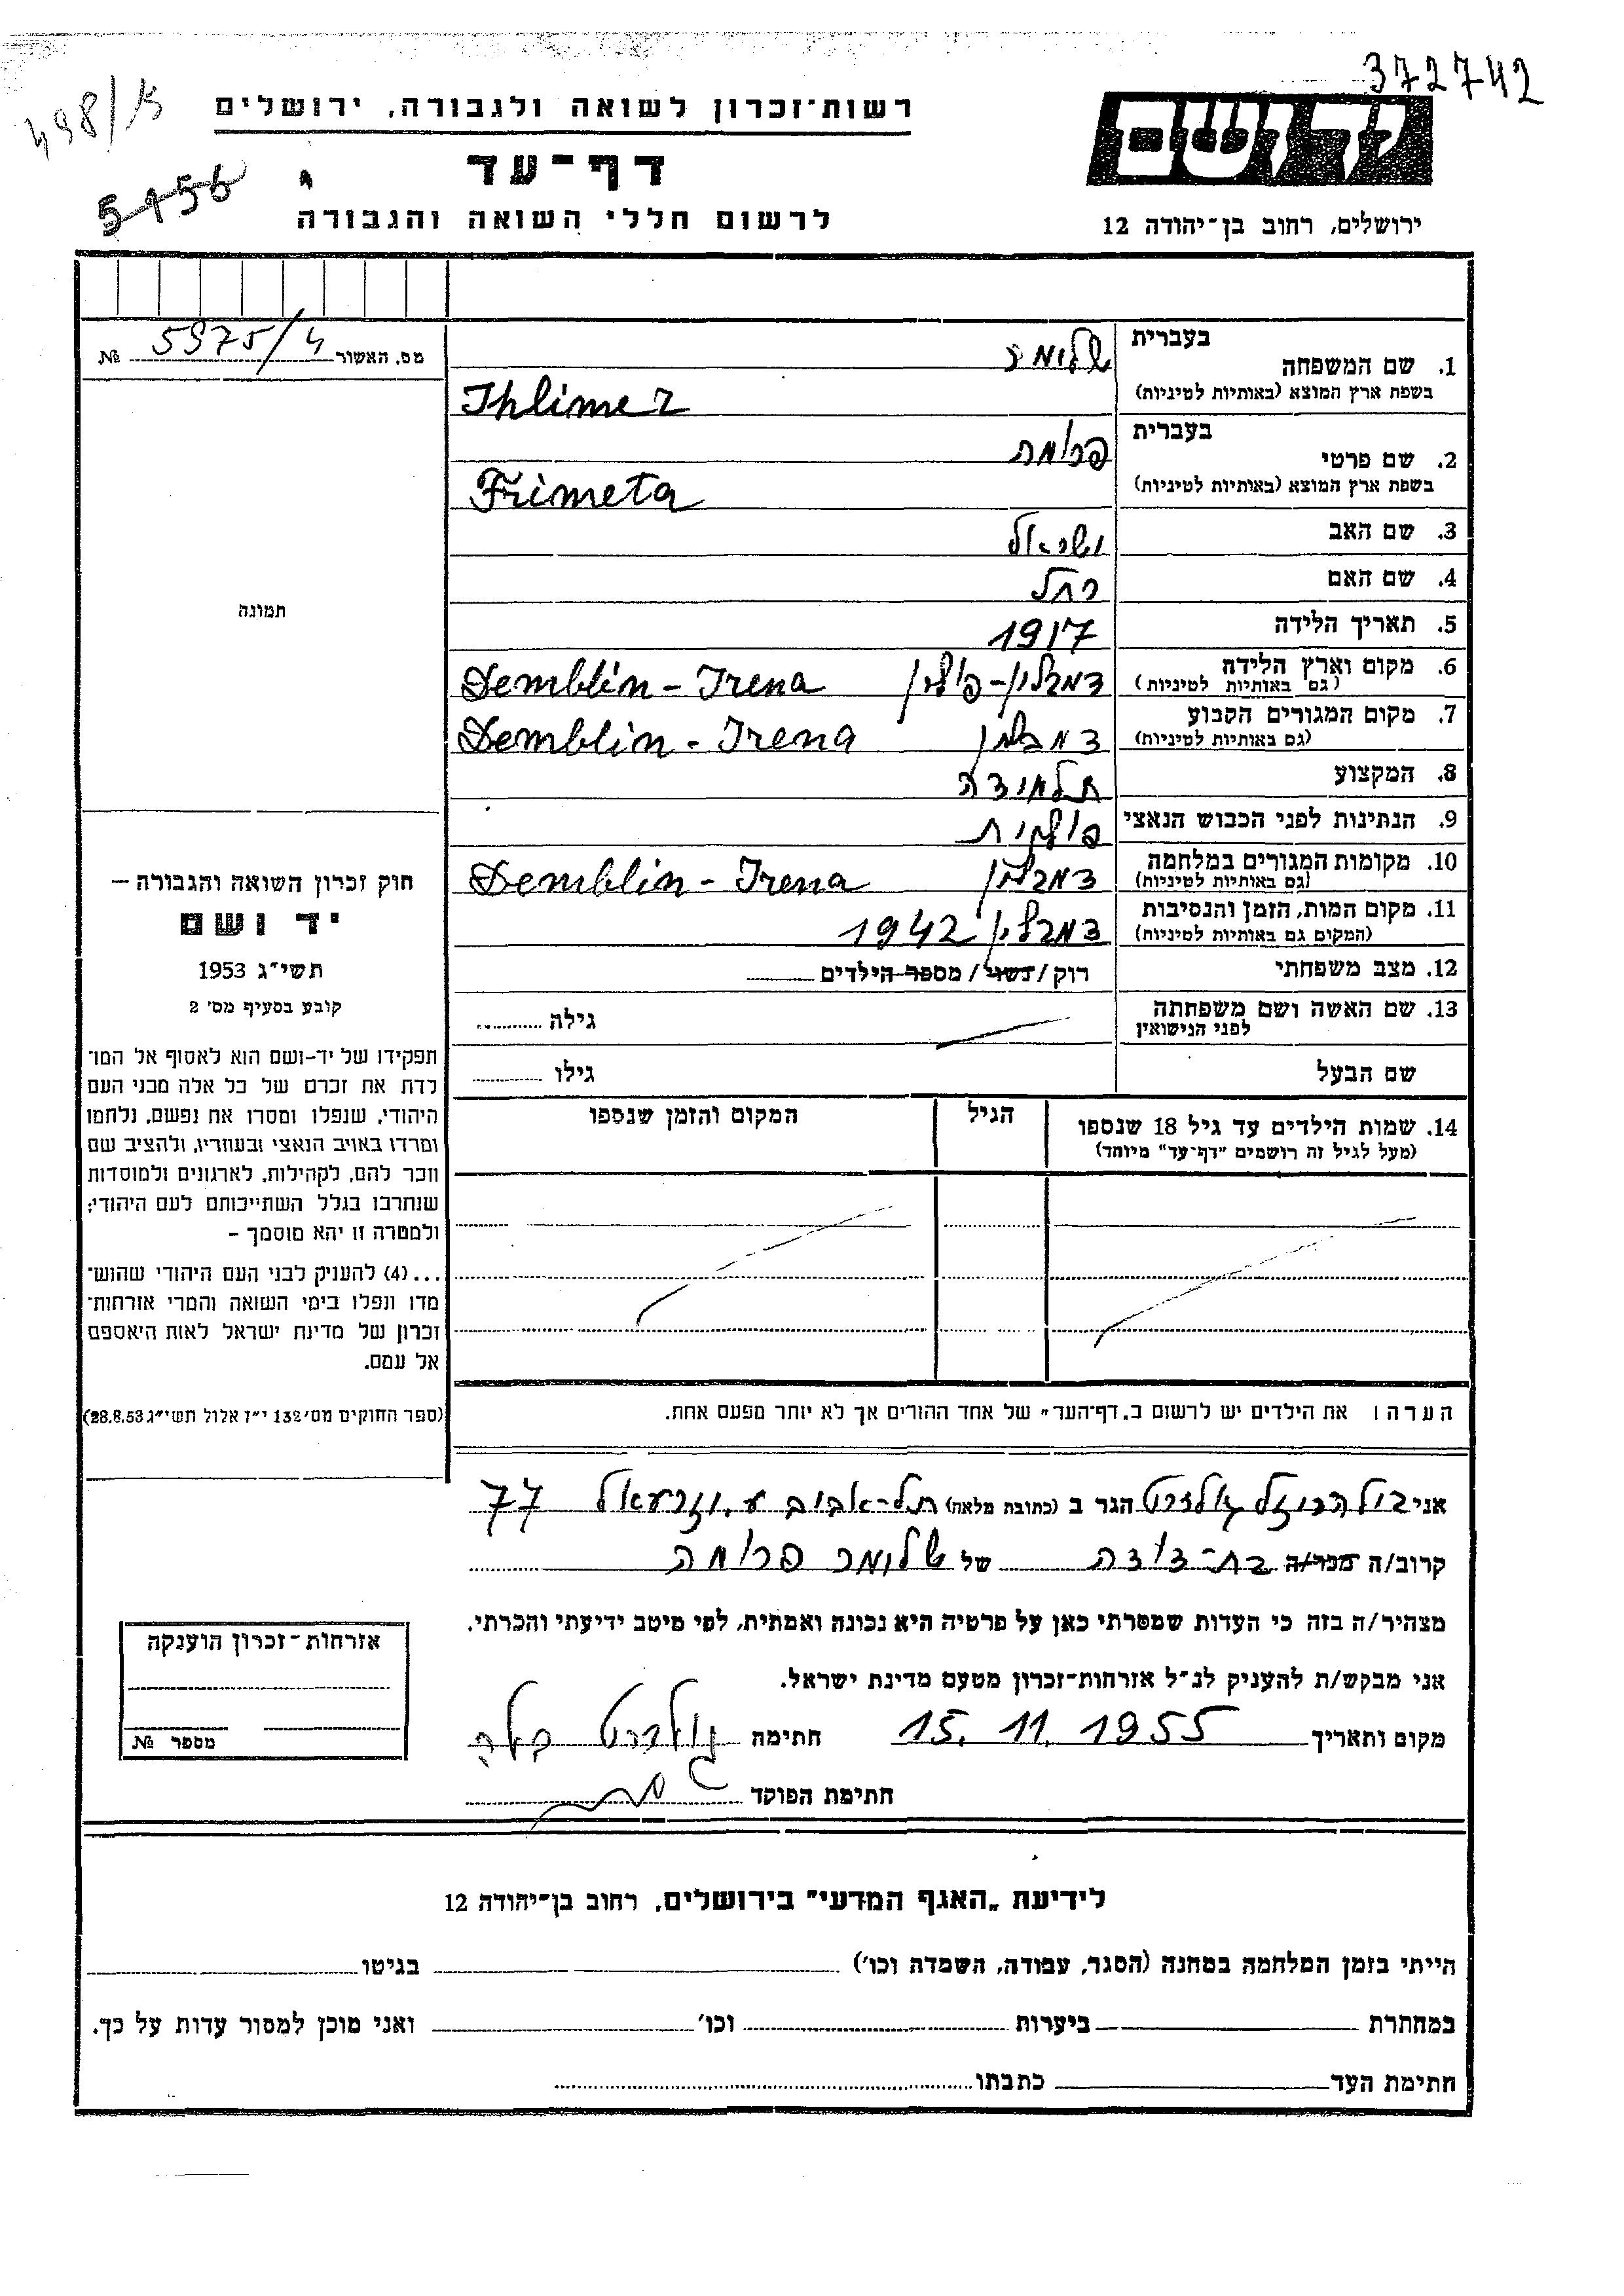 372742
498/15
5156
רשות־זכרון לשואה ולגבורה, ירושלים
דף־עד
לרשום חללי השואה והגבורה
יד ושם
ירושלים, רחוב בן־יהודה 12
מס. האשור 5975/4 №
תמונה
חוק זכרון השואה והגבורה —
יד ושם
תשי״ג 1953
קובע בסעיף מס׳ 2
תפקידו של יד-ושם הוא לאסוף אל המו־
לדת את זכרם של כל אלה מבני העם
היהודי, שנפלו ומסרו את נפשם, נלחמו
ומרדו באויב הנאצי ובעוזריו, ולהציב שם
וזכר להם, לקהילות, לארגונים ולמוסדות
שנחרבו בגלל השתייכותם לעם היהודי;
ולמטרה זו יהא מוסמך —
...(4) להעניק לבני העם היהודי שהוש־
מדו ונפלו בימי השואה והמרי אזרחות־
זכרון של מדינת ישראל לאות היאספם
אל עמם.
(ספר החוקים מס׳ 132 י״ז אלול תשי״ג 28.8.53)
1. שם המשפחה בעברית
בשפת ארץ המוצא (באותיות לטיניות)
Shlimer
2. שם פרטי בעברית פרימה
בשפת ארץ המוצא (באותיות לטיניות)
Frimeta
3. שם האב ישראל
4. שם האם רחל
5. תאריך הלידה 1917
6. מקום וארץ הלידה דמבלין-פולין Demblin - Irena
(גם באותיות לטיניות)
7. מקום המגורים הקבוע דמבלין Demblin - Irena
(גם באותיות לטיניות)
8. המקצוע תלמידה
9. הנתינות לפני הכבוש הנאצי פולנית
10. מקומות המגורים במלחמה דמבלין Demblin - Irena
(גם באותיות לטיניות)
11. מקום המות, הזמן והנסיבות דמבלין 1942
(המקום גם באותיות לטיניות)
12. מצב משפחתי רוק / נשוי / מספר הילדים
13. שם האשה ושם משפחתה גילה
לפני הנישואין
שם הבעל גילו
14. שמות הילדים עד גיל 18 שנספו הגיל המקום והזמן שנספו
(מעל לגיל זה רושמים ״דף־עד״ מיוחד)
הערה: את הילדים יש לרשום ב„דף־העד״ של אחד ההורים אך לא יותר מפעם אחת.
אני גולדברט הגר ב (כתובת מלאה) תל-אביב 77
קרוב/ה מכר/ה בת-דודה של שלומר פרימה
מצהיר/ה בזה כי העדות שמסרתי כאן על פרטיה היא נכונה ואמתית, לפי מיטב ידיעתי והכרתי.
אני מבקש/ת להעניק לנ״ל אזרחות־זכרון מטעם מדינת ישראל.
מקום ותאריך 15. 11. 1955 חתימה
חתימת הפוקד
אזרחות־זכרון הוענקה
מספר №
לידיעת „האגף המדעי״ בירושלים, רחוב בן־יהודה 12
הייתי בזמן המלחמה במחנה (הסגר, עבודה, השמדה וכו׳) בגיטו
במחתרת ביערות וכו׳ ואני מוכן למסור עדות על כך.
חתימת העד כתבתו